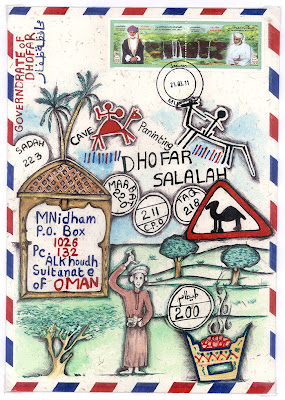 GOVERNDRATE OF
DHOFAR
محافظة ظفار
21.03.11
SADAH
223
CAVE
Paninting
DHOFAR
SALALAH
MARBAT
220
211
C.P.O
TAQ
218
MNidham
P.O. Box
1026
Pc 132
ALKhoudh
Sultanate
of OMAN
200